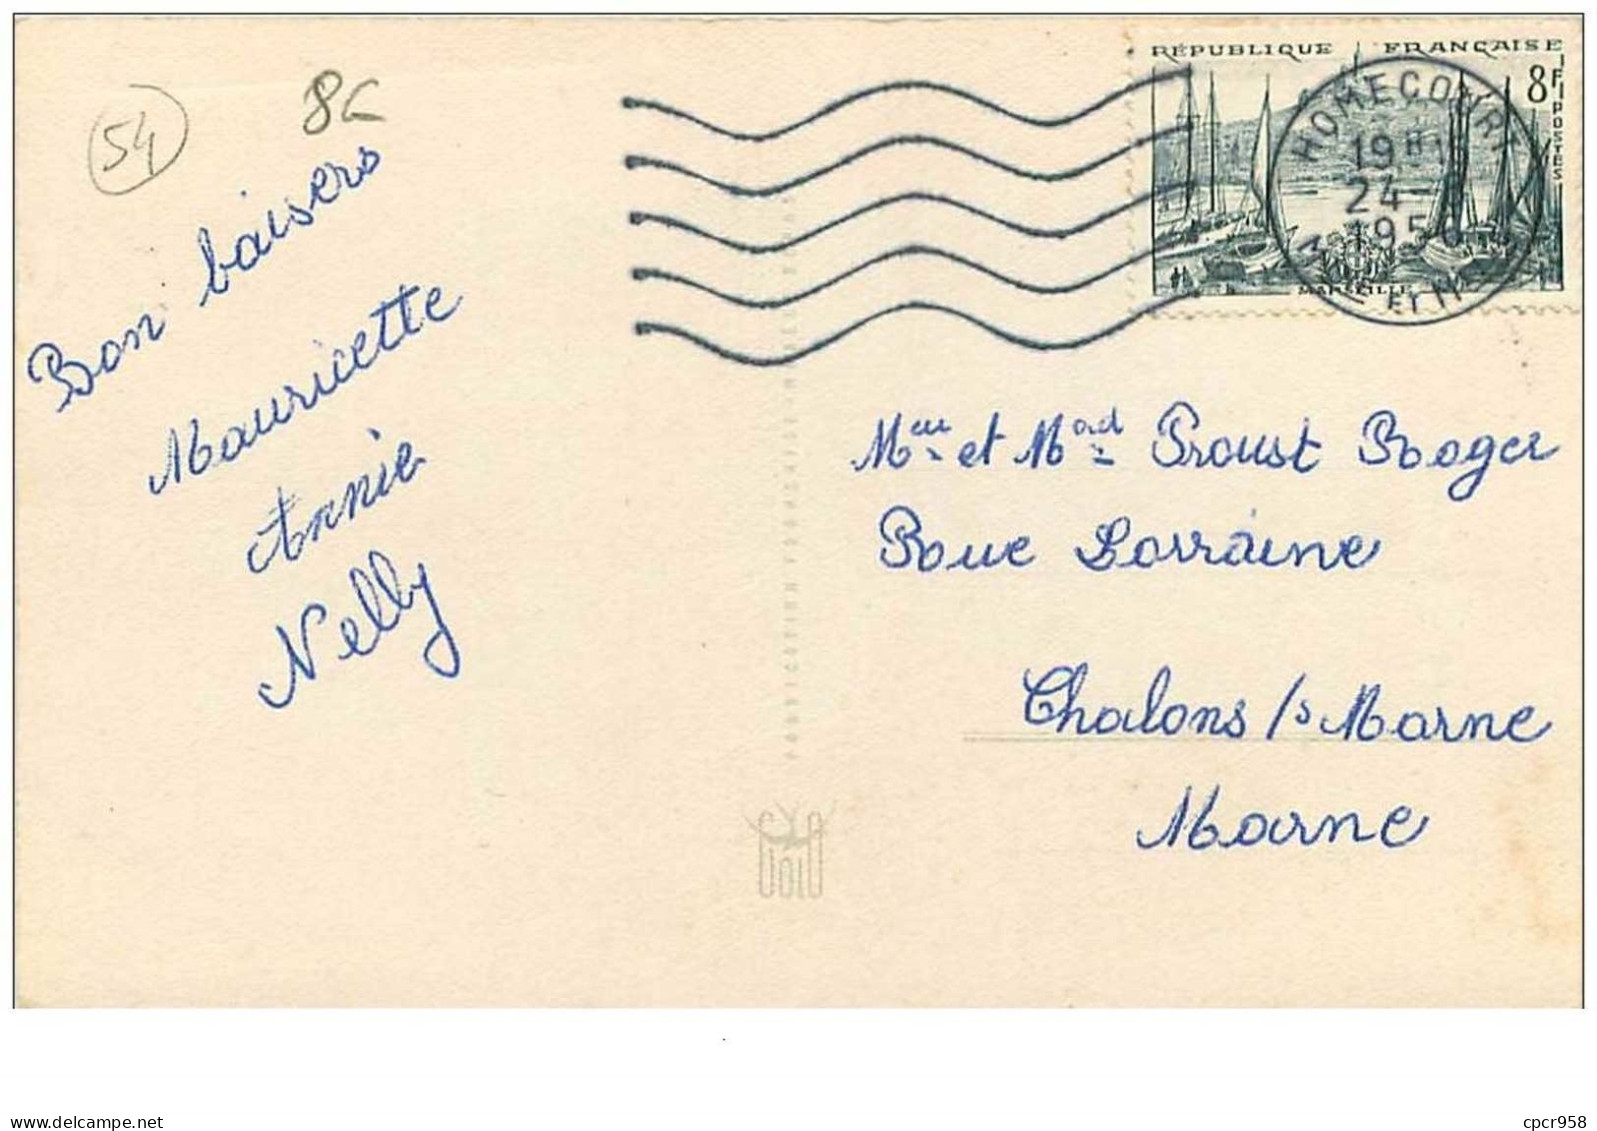 54
8€
Bon baisers
Mauricette
Annie
Nelly
RÉPUBLIQUE FRANÇAISE
8F
POSTES
MARSEILLE
HOMECOURT
19H
24-
195
Mr et Mad Proust Roger
Roue Lorraine
Chalons /s Marne
Marne
delcampe.net
cpcr958